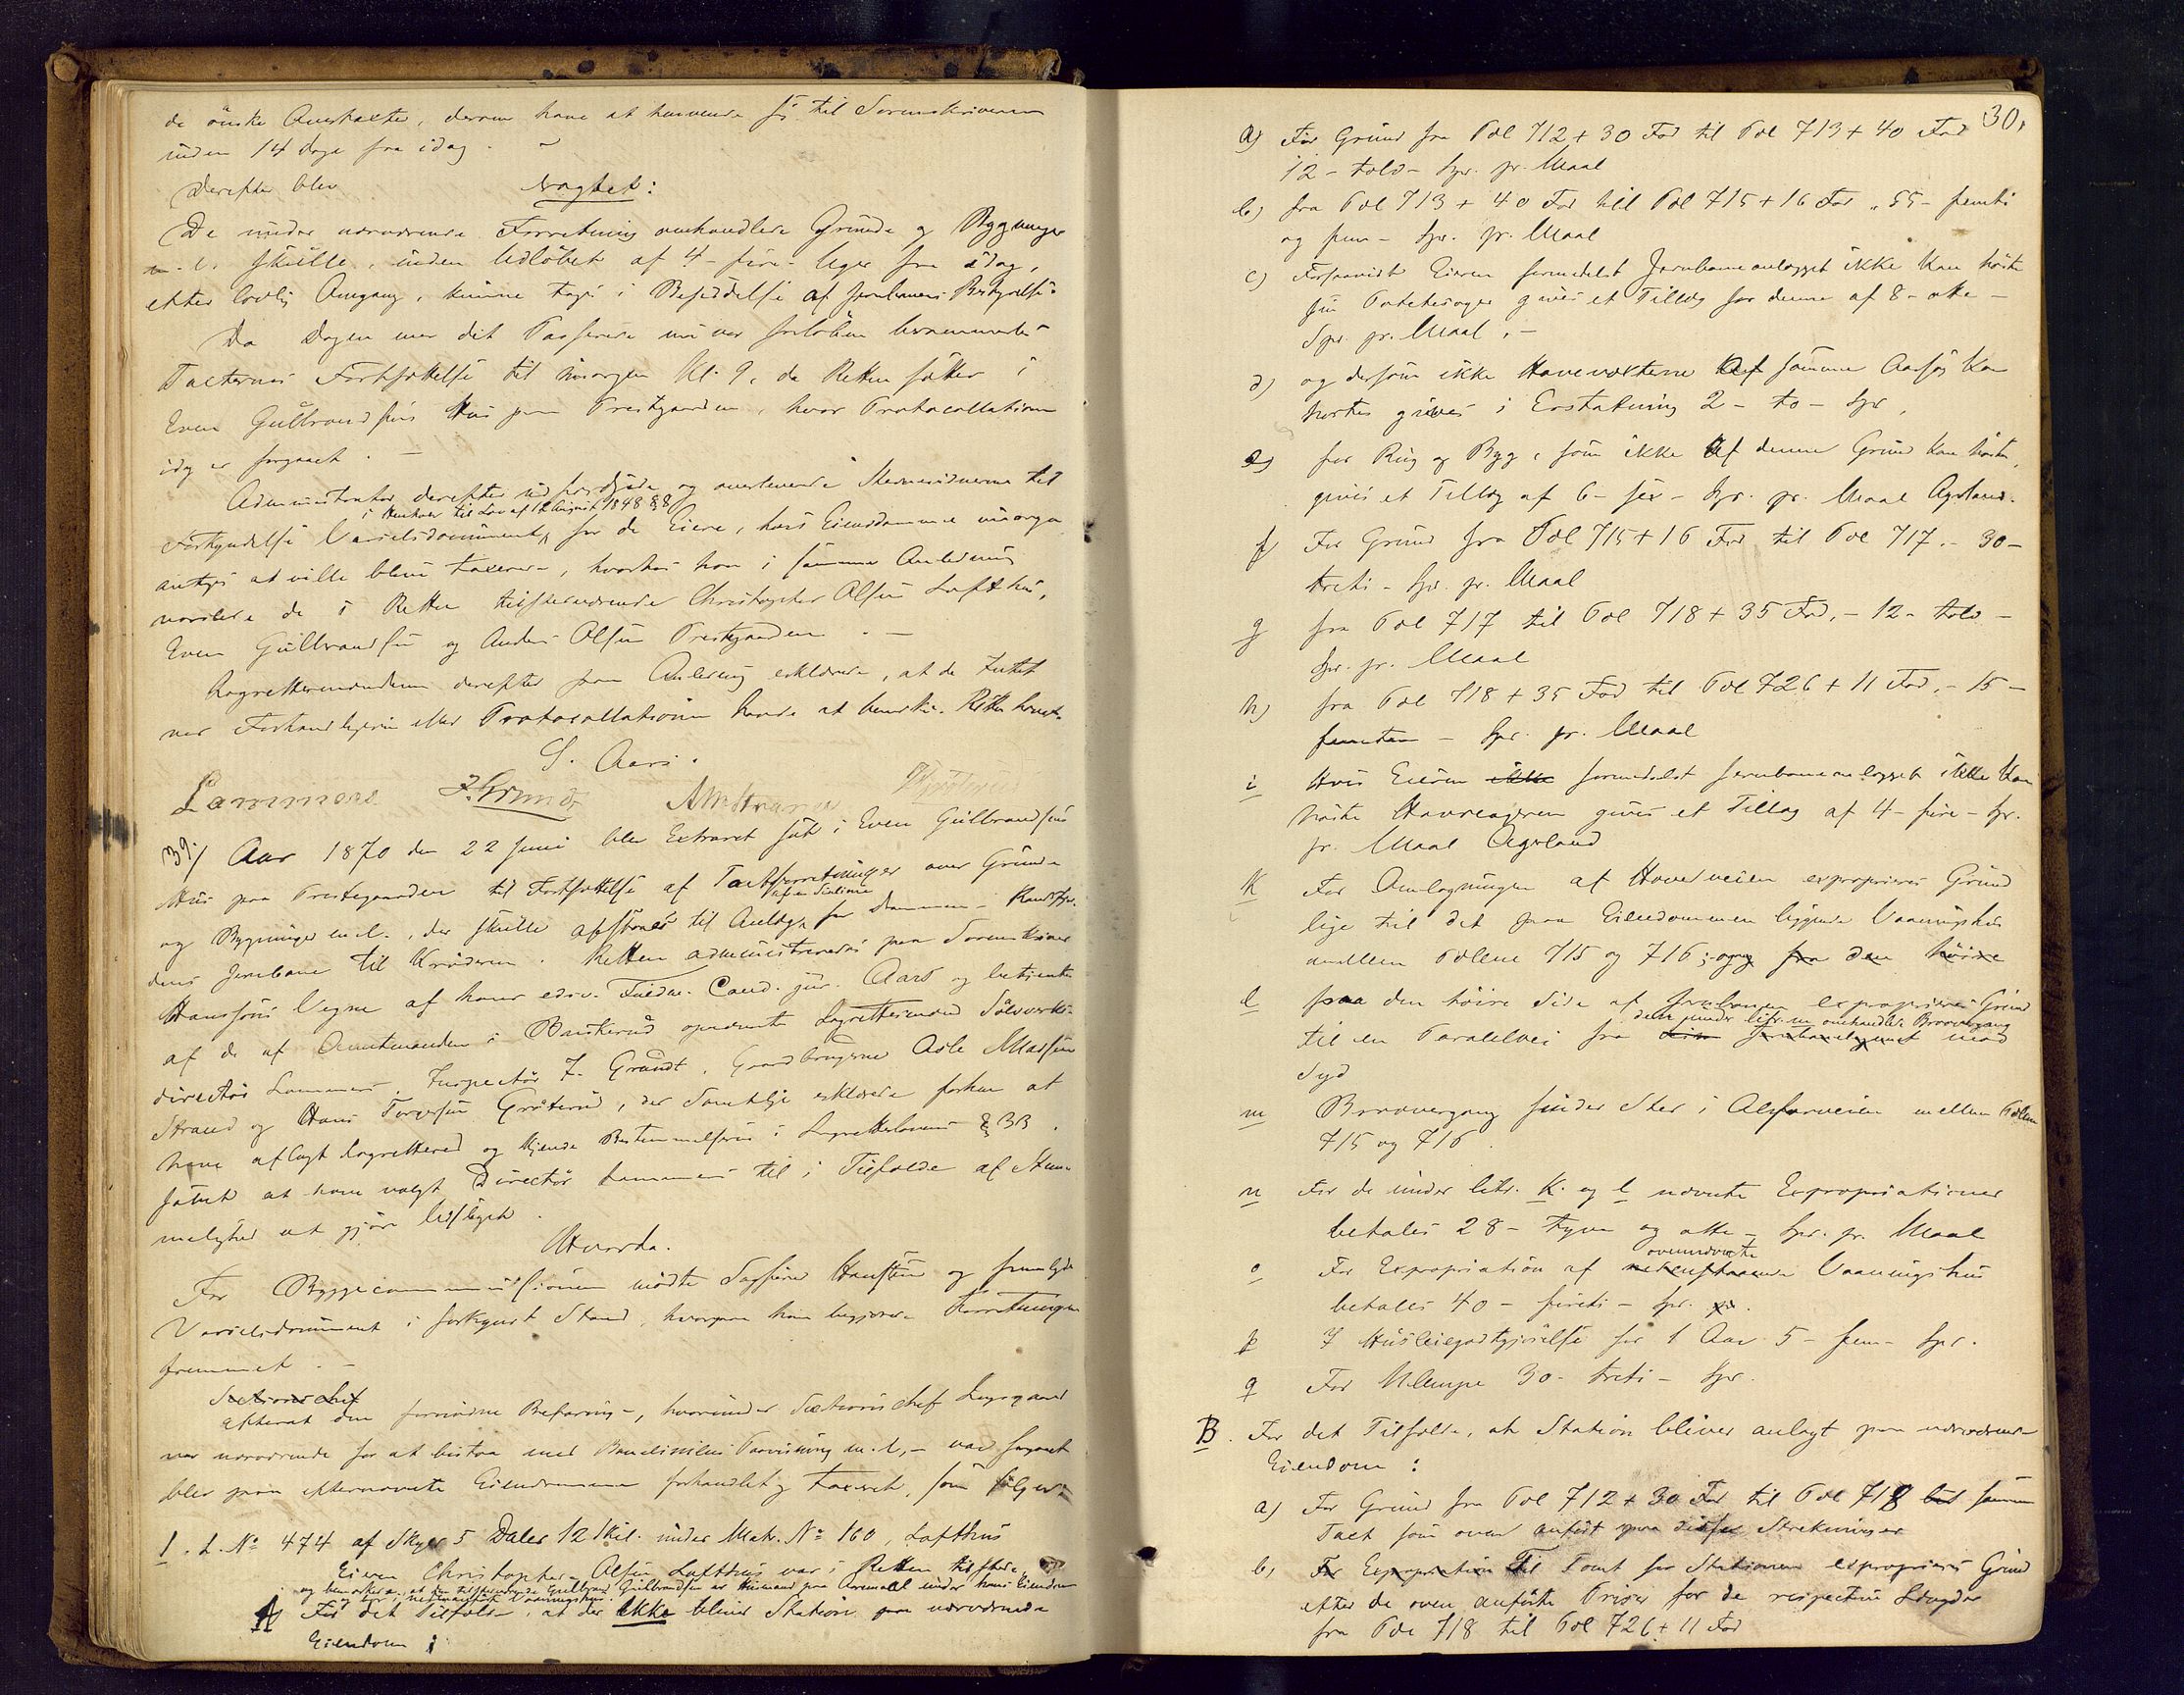 de ønske Overtaxter, derom have at henvende sig til Sorenskriveren
inden 14 dage fra idag. –
Derefter blev
Vragtet:
De under nærværende Forretning omhandlede Grunde og Bygninger
m. v. skulle, inden Udløbet af 4 – fire – Uger fra idag,
efter lovlig Omgang, kunne tages i Besiddelse af Jernbanens Bestyrelse.
Da Dagen med det Passerede nu var forløben berammedes
Taxternes Fortsættelse til imorgen Kl. 9, da Retten sættes i
Even Gulbrandsens Hus paa Prestgaarden, hvor Protocollationen
idag er foregaaet. –
Administrator derefter udfærdigede og overleverede Stevnevidnerne til
i Henhold til Lov af 12 August 1848 § 8
Forkyndelse Varselsdocument, for de Eiere, hvis Eiendomme imorgen
antages at ville blive taxerede, hvorhos han i samme Anledning
varslede de i Retten tilstedeværende Christopher Olsen Lofthus,
Even Gulbrandsen og Anders Olsen Prestgaarden. –
Lagrettesmændene derefter paa Anledning erklærede, at de Intet
ved Forhandlingerne eller Protocollationen havde at bemærke. Retten hævet.
S. Aars.
Lammers J. Grundt
39./ Aar 1870 den 22 Juni blev Extraret sat i Even Gulbrandsens
Hus paa Prestegaarden til Fortsættelse af Taxtforretninger over Grunde
af en Sidelinie
og Bygninger m. v., der skulle afstaaes til Anlæg for Drammen – Randsfjor-
dens Jernbane til Krøderen. Retten administreredes paa Sorenskriver
Hansens Vegne af hans edsv. Fuldm. Cand. jur. Aars og betjentes
af de af Amtmanden i Buskerud opnævnte Lagrettesmænd Sølvverks-
directør Lammers, Inspectør J. Grundt, Gaardbrugerne Asle Madsen
Strand og Hans Torgersen Grøterud, der Samtlige erklærede forhen at
have aflagt Lagrettesed og kjende Bestemmelserne i Lagretteloven § 33.
samt at have valgt Directør Lammers til i Tilfælde af Stem-
melighed at gjøre Udslaget.
Hvorda.
For Byggecommissionen mødte Sagfører Hansteen og fremlagde
Varselsdocument i forkyndt Stand, hvorpaa han begjærede Forretningen
fremmet. –
Sectionschef
efterat den fornødne Befaring –, hvorunder Sectionschef Lysgaard
var nærværende for at bistaa med Banelinies Paavisning m. v., – var foregaaet
blev paa efternævnte Eiendomme forhandlet og taxeret, som følger:
1. L. No 474 af Skyld 5 Daler 12 Skil. under Matr. No 160, Lofthus
Eieren Christopher Olsen Lofthus var i Retten tilstede
og bemærkede, at den tilstedeværende Gulbrand Gulbrandsen er Husmand paa under hans Eiendom
og bor i nedenanførte Vaaningshus.
A) For det Tilfælde, at der ikke bliver Station paa nærværende
Eiendom:
30.
a) For Grund fra Pæl 712 + 30 Fod til Pæl 713 + 40 Fod
12 – tolv – Spd. pr. Maal
b) fra Pæl 713 + 40 Fod til Pæl 715 + 16 Fod „ 55 – femti
og fem – Spd. pr. Maal
c) Forsaavidt Eieren formedelst Jernbaneanlægget ikke kan høste
sin Potetesager gives et Tillæg for denne af 8 – otte –
Spd. pr. Maal. –
d) og dersom ikke Havevæxterne af samme Aarsag kan
høstes gives i Erstatning 2 – to – Spd.
e) for Rug og Byg, som ikke af denne Grund kan høstes,
gives et Tillæg af 6 – sex – Spd. pr. Maal Agerland.
f) For Grund fra Pæl 715 + 16 Fod til Pæl 717. – 30 –
treti – Spd. pr. Maal
g fra Pæl 717 til Pæl 718 + 35 Fod, – 12 – tolv –
Spd. pr. Maal
h) fra Pæl 718 + 35 Fod til Pæl 726 + 11 Fod, – 15 –
femten – Spd. pr. Maal
i Hvis Eieren ikke formedelst Jernbaneanlægget ikke kan
høste Havreageren gives et Tillæg af 4 – fire – Spd.
pr. Maal Agerland
K For Omlægningen af Hovedveien exproprieres Grund
lige til det paa Eiendommen liggende Vaaningshus
mellem Pælene 715 og 716; og fra den høire
l paa den høire Side af Jernbanen exproprieres Grund
den under litr. m omhandlede Broovergang
til en Paralelvei fra Linie Jernbanelegemet mod
Syd
m Broovergang finder Sted i Alfarveien mellem Pælene
715 og 716.
n For de under litr. K. og l nævnte Expropriationer
betales 28 – tyve og otte – Spd. pr. Maal
ovennævnte
o For Expropriation af nedenstaaende Vaaningshus
betales 40 – fireti – Spd. pr.
p I Husleiegodtgjørelse for 1 Aar 5 – fem – Spd.
q For Ulempe 30 – treti – Spd.
B. For det Tilfælde, at Station bliver anlagt paa nærværende
Eiendom:
a) For Grund fra Pæl 712 + 30 Fod til Pæl 718 bet samme
Taxt som oven anført paa disse Strekninger
b, For Expropriation Til Tomt for Stationen exproprieres Grund
efter de oven anførte Priser for de respective Længder
fra Pæl 718 til Pæl 726 + 11 Fod